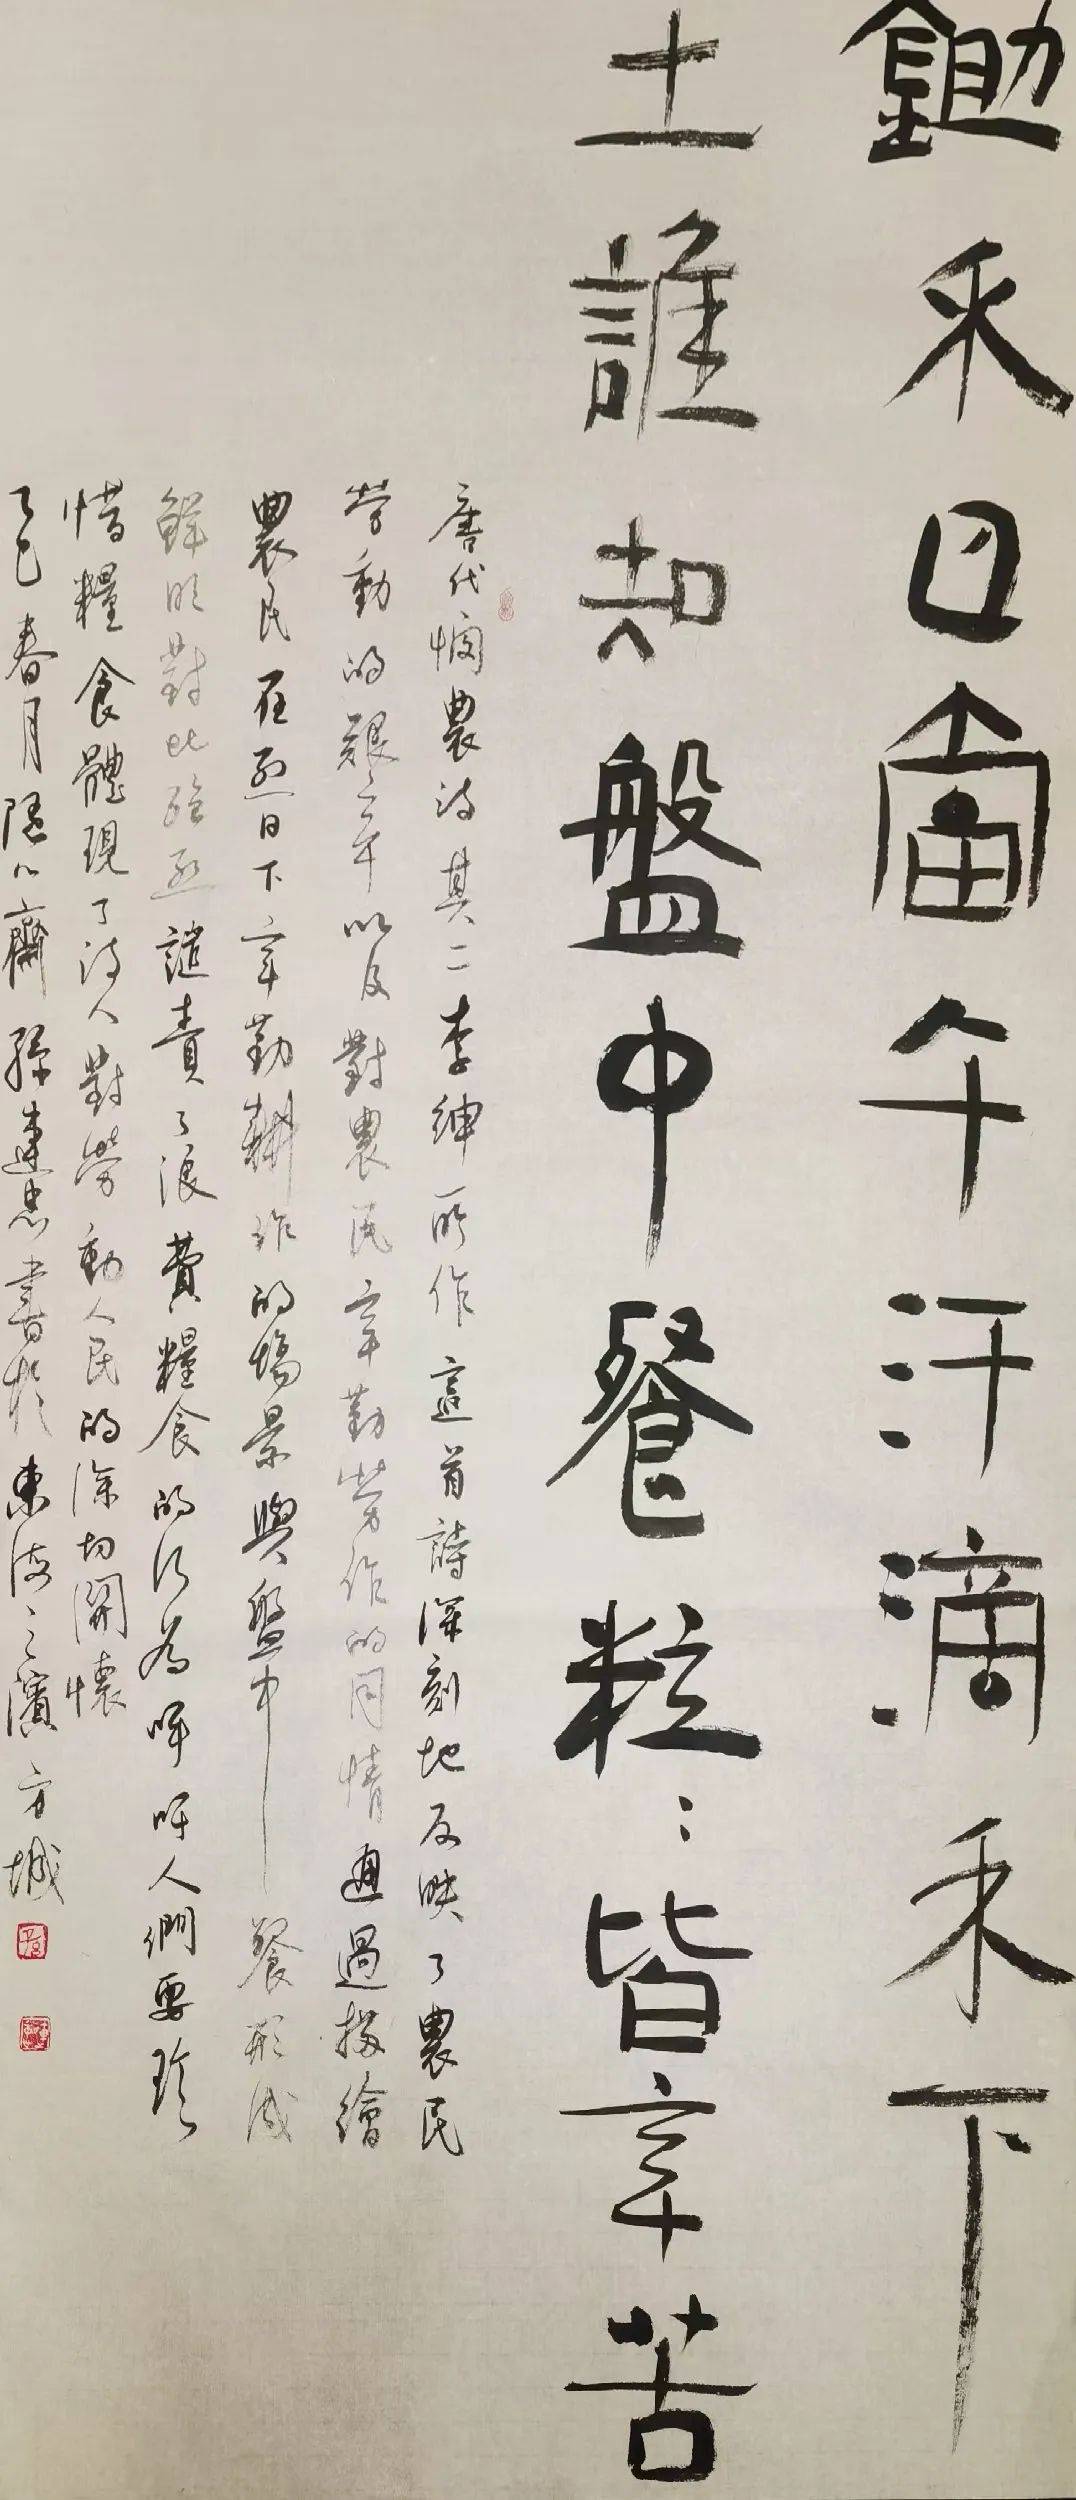 鋤禾日當午汗滴禾下
土誰知盤中餐粒〻皆辛苦
唐代憫農詩其二李紳所作這首詩深刻地反映了農民
勞動的艱辛以及對農民辛勤勞作的同情通過描繪
農民在烈日下辛勤耕作的場景與盤中餐形成
鮮明對比強烈譴責了浪費糧食的行為呼吁人們要珍
惜糧食體現了詩人對勞動人民的深切關懷
乙巳春月隨心齋孫建忠書於東海之濱方城